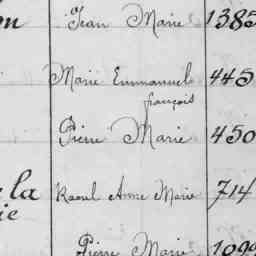 Jean Marie 1385
Marie Emmanuel 445
françois
Pierre Marie 450
la Raoul Anne Marie 714
ie
Pierre Marie 1099